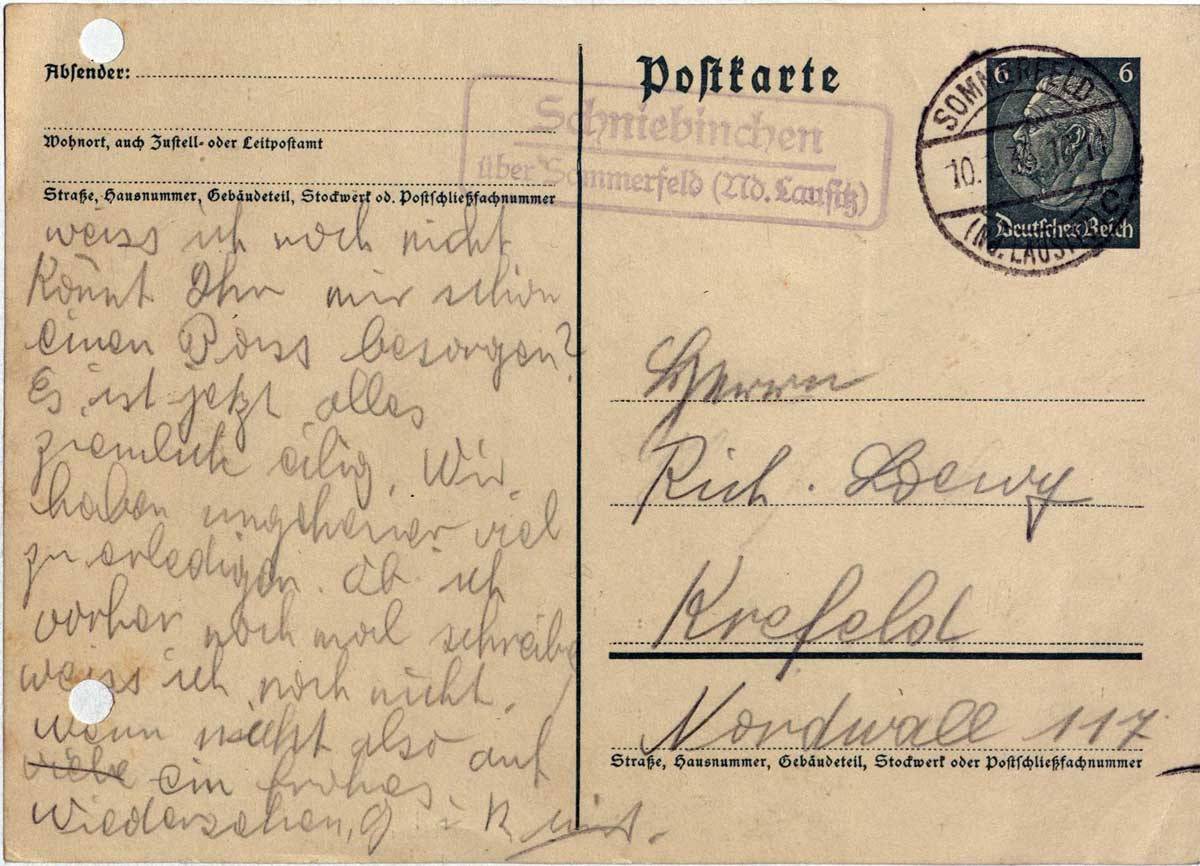 Absender:
Wohnort, auch Zustell- oder Leitpostamt
Straße, Hausnummer, Gebäudeteil, Stockwerk od. Postschließfachnummer
weiss ich noch nicht
Könnt Ihr mir schon
einen Pass besorgen?
Es ist jetzt alles
ziemlich eilig. Wir
haben ungeheuer viel
zu erledigen. Ob ich
vorher noch mal schreibe
weiss ich noch nicht.
wenn nicht also auf
ein frohes
Wiedersehen, G. u. K
Postkarte
Schniebinchen
über Sommerfeld (Nd. Lausitz)
SOMMERFELD
10.
(Nd. LAUSITZ)
C
6 6
Deutsches Reich
Herrn
Rich. Loewy
Krefeld
Nordwall 117
Straße, Hausnummer, Gebäudeteil, Stockwerk oder Postschließfachnummer